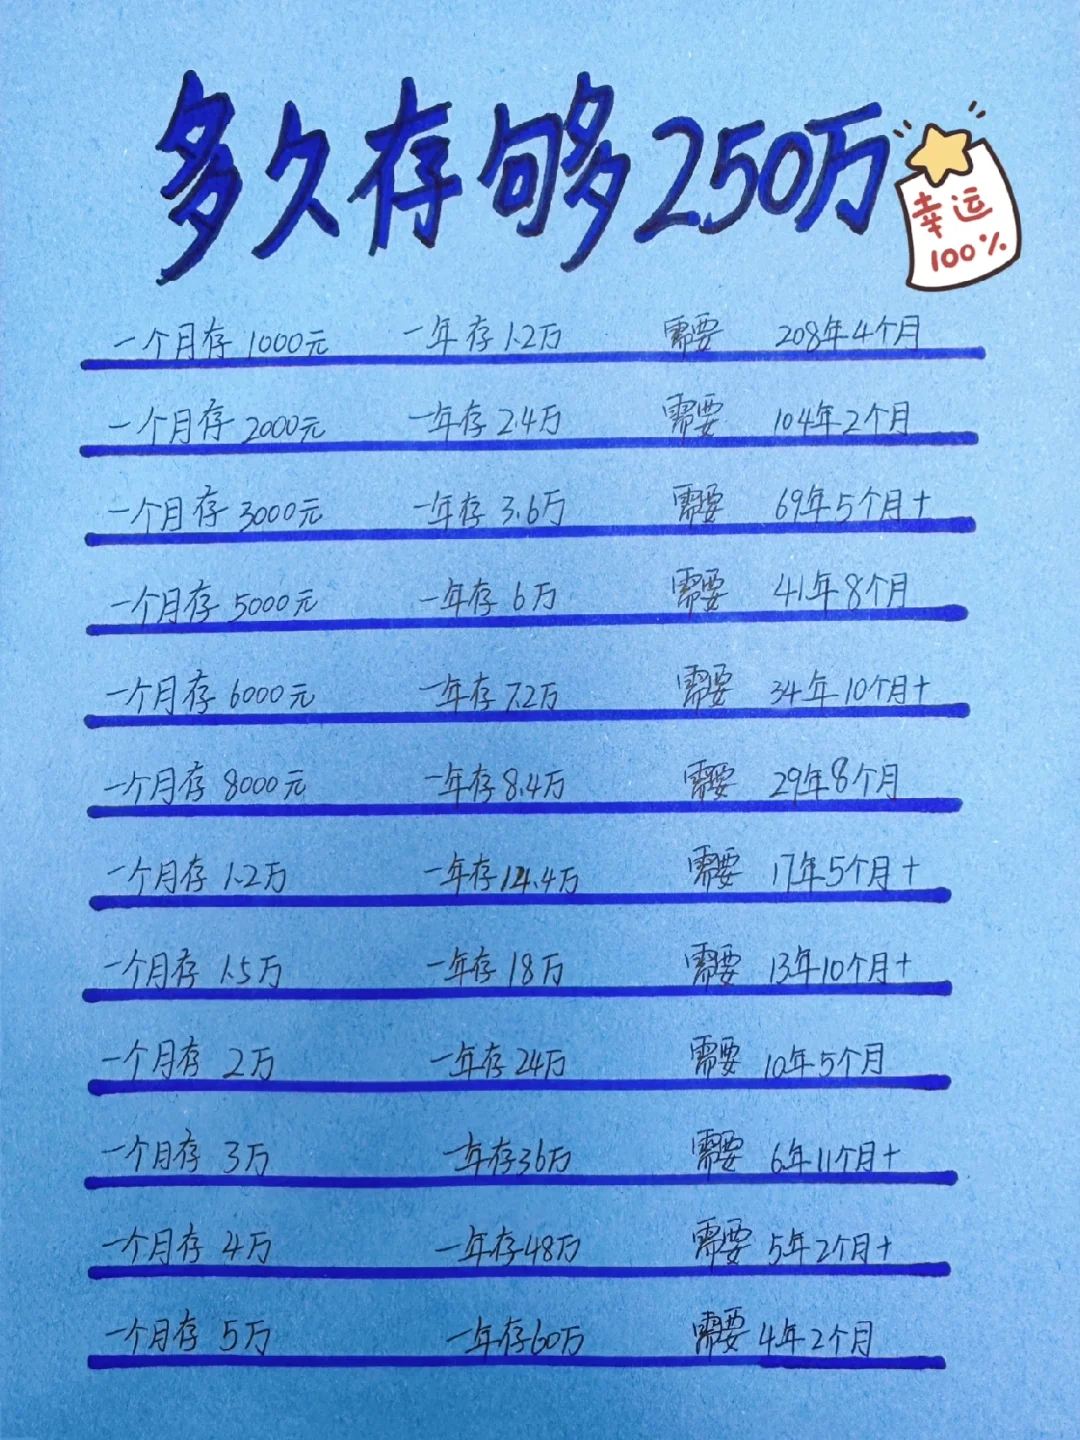 多久存够250万
幸运
100%
一个月存1000元 一年存1.2万 需要 208年4个月
一个月存2000元 一年存2.4万 需要 104年2个月
一个月存3000元 一年存3.6万 需要 69年5个月+
一个月存5000元 一年存6万 需要 41年8个月
一个月存6000元 一年存7.2万 需要 34年10个月+
一个月存8000元 一年存8.4万 需要 29年8个月
一个月存1.2万 一年存14.4万 需要 17年5个月+
一个月存1.5万 一年存18万 需要 13年10个月+
一个月存2万 一年存24万 需要 10年5个月
一个月存3万 一年存36万 需要 6年11个月+
一个月存4万 一年存48万 需要 5年2个月+
一个月存5万 一年存60万 需要 4年2个月